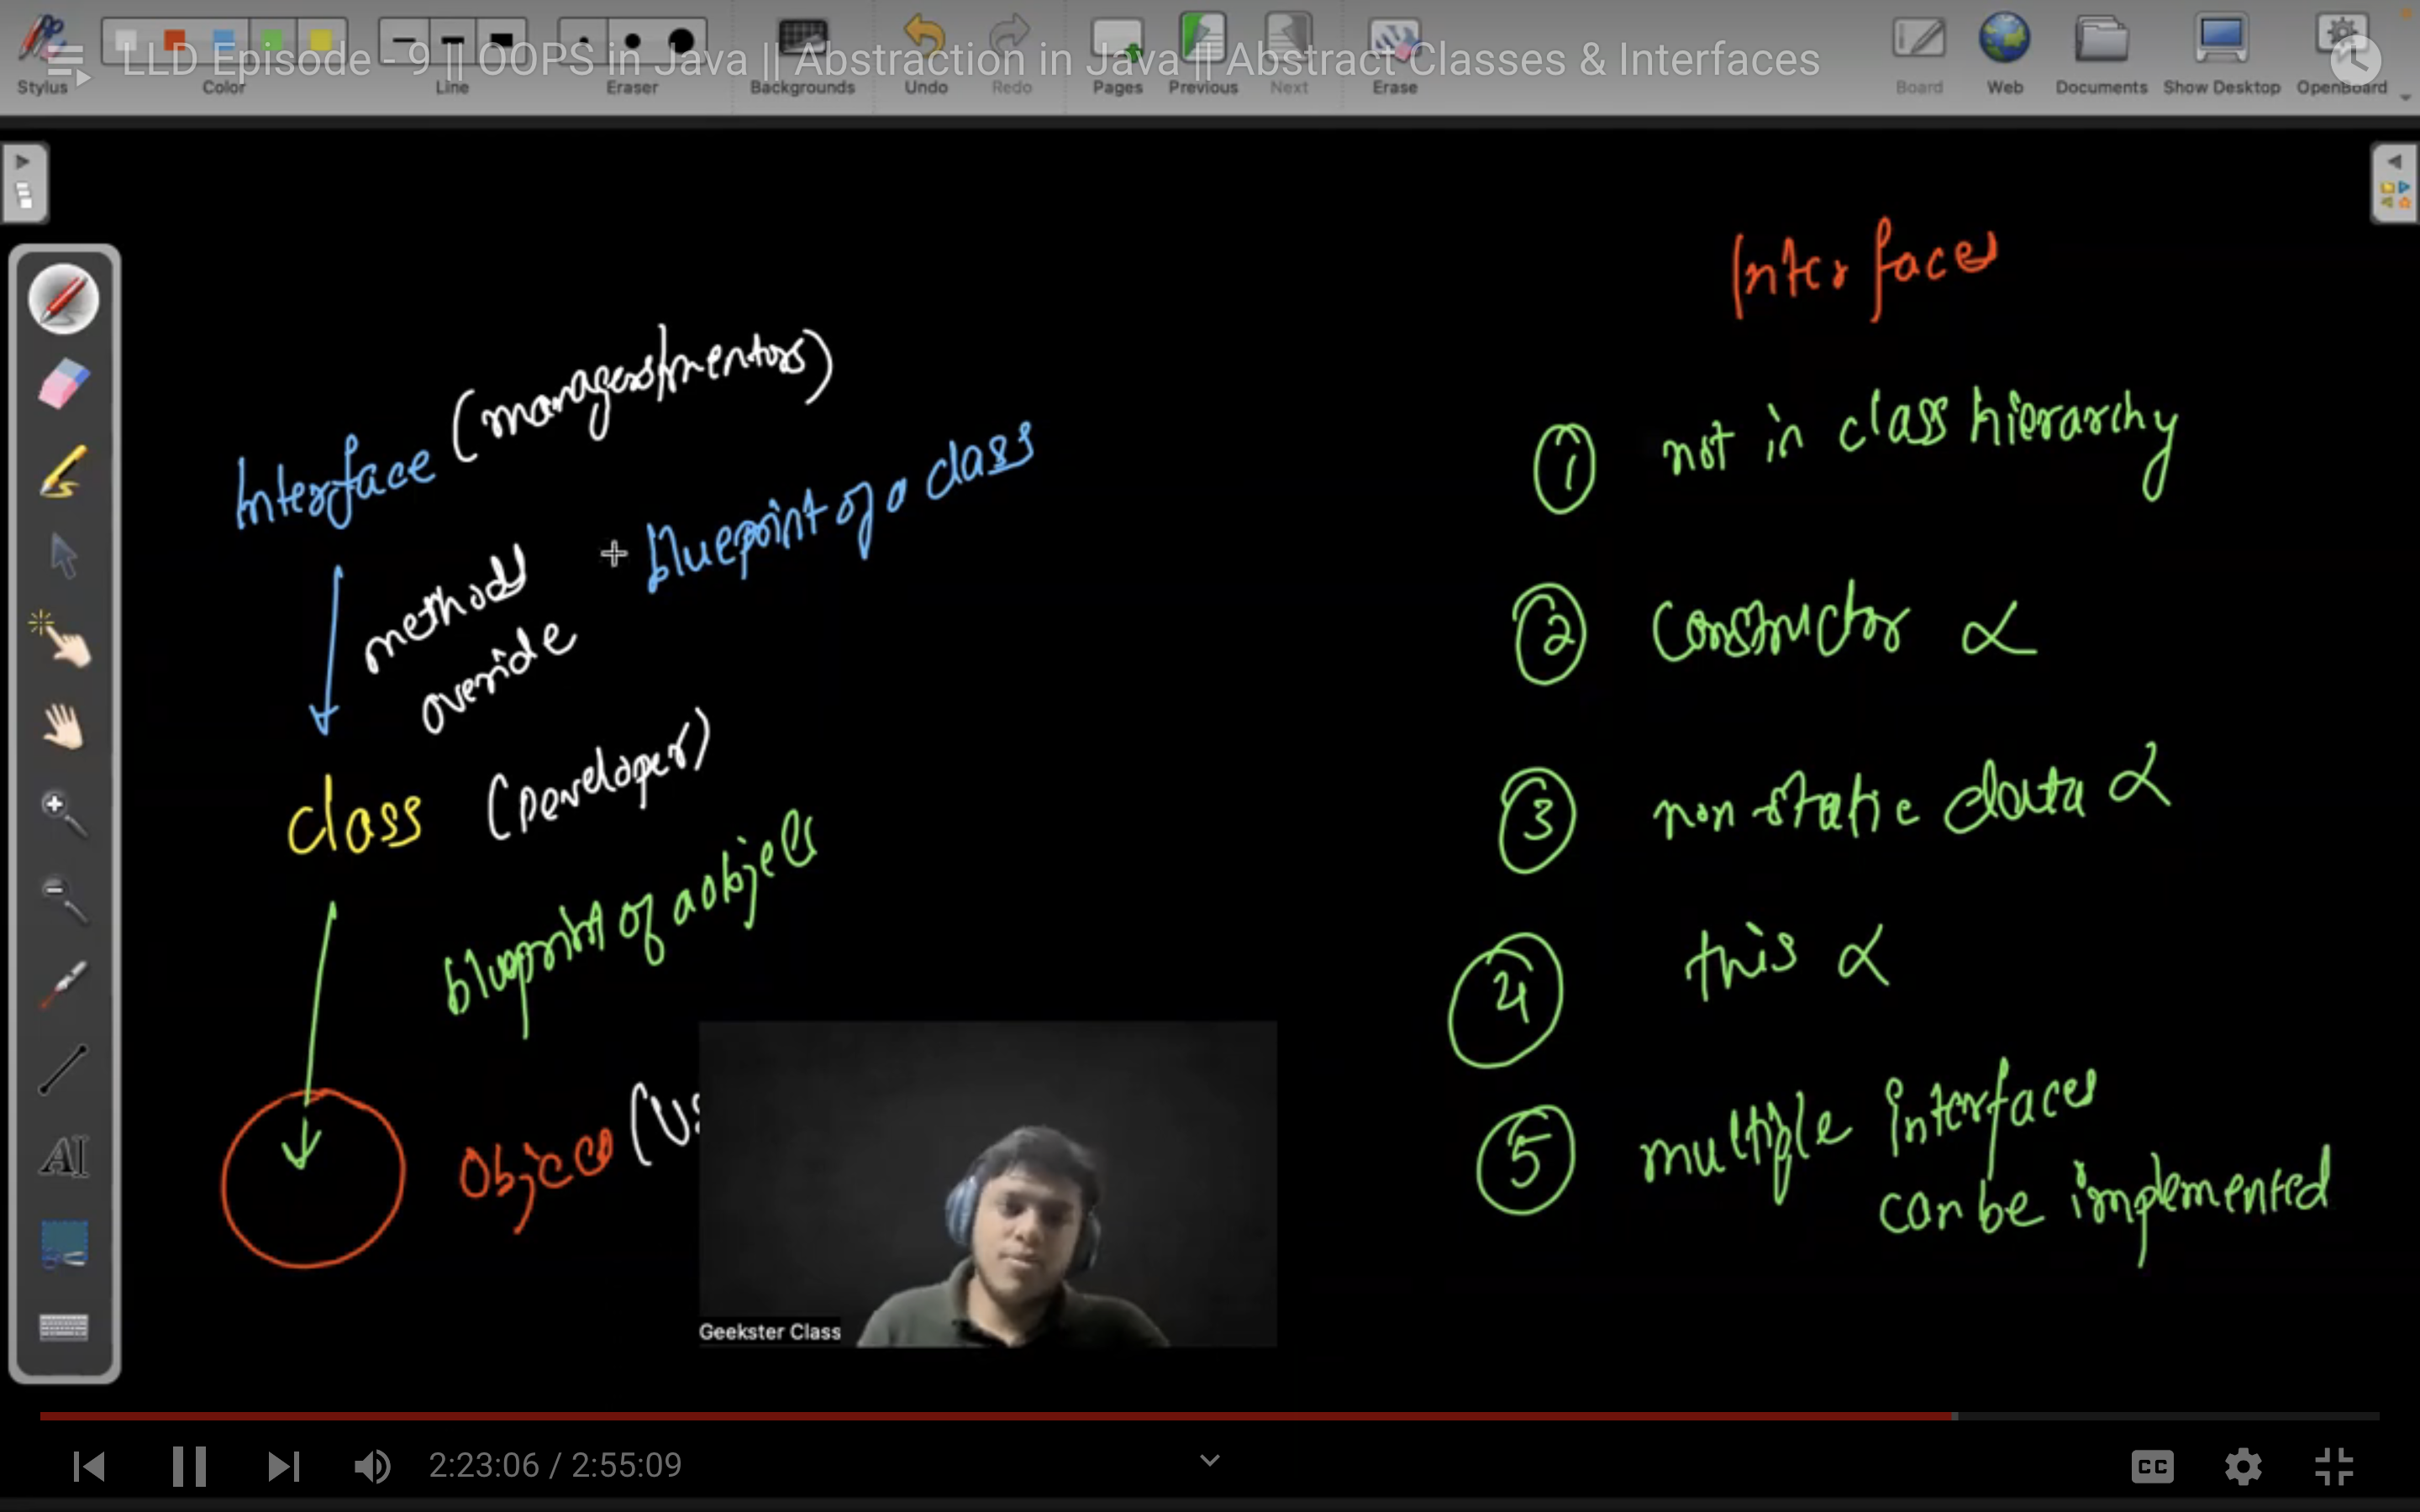 LLD Episode - 9 || OOPS in Java || Abstraction in Java || Abstract Classes & Interfaces
Stylus Color Line Eraser Backgrounds Undo Redo Pages Previous Next Erase Board Web Documents Show Desktop OpenBoard
Interface (managers/mentors)
blueprint of a class
method
override
class (Developer)
blueprint of a objects
Object (Us
Interfaces
1 not in class hierarchy
2 Constructor x
3 non static data x
4 this x
5 multiple interfaces
can be implemented
AI
Geekster Class
2:23:06 / 2:55:09
CC